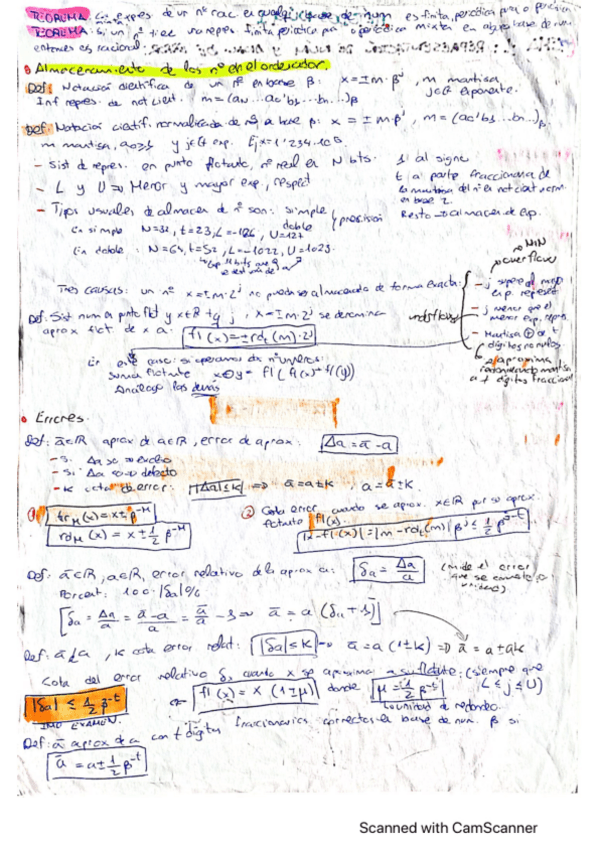 TEOREMA: expres de un nº rac en cualquier base de num es finita, periódica pura o periódica
TEOREMA: si un nº tiene una repres. finita, periódica pura o periódica mixta en alguna base de num
entonces es racional.
• Almacenamiento de los nº en el ordenador.
Def: Notación científica de un nº en base β: x = ± m·β^j, m mantisa,
j∈ℤ exponente.
Inf repres. de not cient. m = (an...a0'b1...bn...)β
Def: Notación científ. normalizada de nº a base β: x = ± m·β^j, m = (a0'b1...bn...)β
m mantisa, a0≠0 y j∈ℤ exp. Ej x = 1'234·10^5
- Sist de repres. en punto flotante, nº real en N bits.
1 al signo
t a parte fraccionaria de
la mantisa del nº en not cient norm
en base 2.
Resto → almacen de exp.
- L y U ⇒ Menor y mayor exp, respect
- Tipos usuales de almacen de nº son: simple / doble } precisión
En simple N=32, t=23, L=-126, U=127
En doble: N=64, t=52, L=-1022, U=1023
Tres causas: un nº x=±m·2^j no puede ser almacenado de forma exacta:
overflow
- j supera el mayor
exp. represent
underflow
- j menor que el
menor exp. repres
- Mantisa ⊕ de t
dígitos no nulos
se aproxima
redondeando mantisa
a t dígitos fraccional
Def: Sist num a punto flot y x∈ℝ tq j, x=±m·2^j se denomina
aprox flot. de x a: fl(x)=±rdt(m)·2^j
En este caso: si operamos dos números:
suma flotante x⊕y = fl(fl(x)+fl(y))
Análogo los demás
• Errores.
Def: ā∈ℝ aprox de a∈ℝ, error de aprox: Δa = ā - a
- Si Δa >0 exceso
- Si Δa <0 defecto
- K cota de error: |Δa|≤K ⇒ ā=a±K, a=ā±K.
① trM(x)=x±β^-M
rdM(x)=x±1/2 β^-M
② Cota error cuando se aprox. x∈ℝ por su aprox.
flotante fl(x).
|x-fl(x)|=|m-rdt(m)|β^j ≤ 1/2 β^j-t
Def: ā∈ℝ, a∈ℝ, error relativo de la aprox a: δa = Δa/a (mide el error
que se comete por
unidad)
Porcent: 100·|δa|%
[δa = Δa/a = ā-a/a = ā/a - 1 ⇒ ā = a(δa+1)]
Def: ā≈a, K cota error relat: |δa|≤K ⇒ ā=a(1±K) ⇒ ā=a±aK
Cota del error relativo δx cuando x se aproxima a su flotante: (siempre que
L≤j≤U)
|δa| ≤ 1/2 β^-t
IMP EXAMEN.
fl(x) = x(1±μ) donde μ = 1/2 β^-t
↳ unidad de redondeo
Def: ā aprox de a con t dígitos fraccionarios correctos en base de num. β si
ā = a ± 1/2 β^-t
Scanned with CamScanner